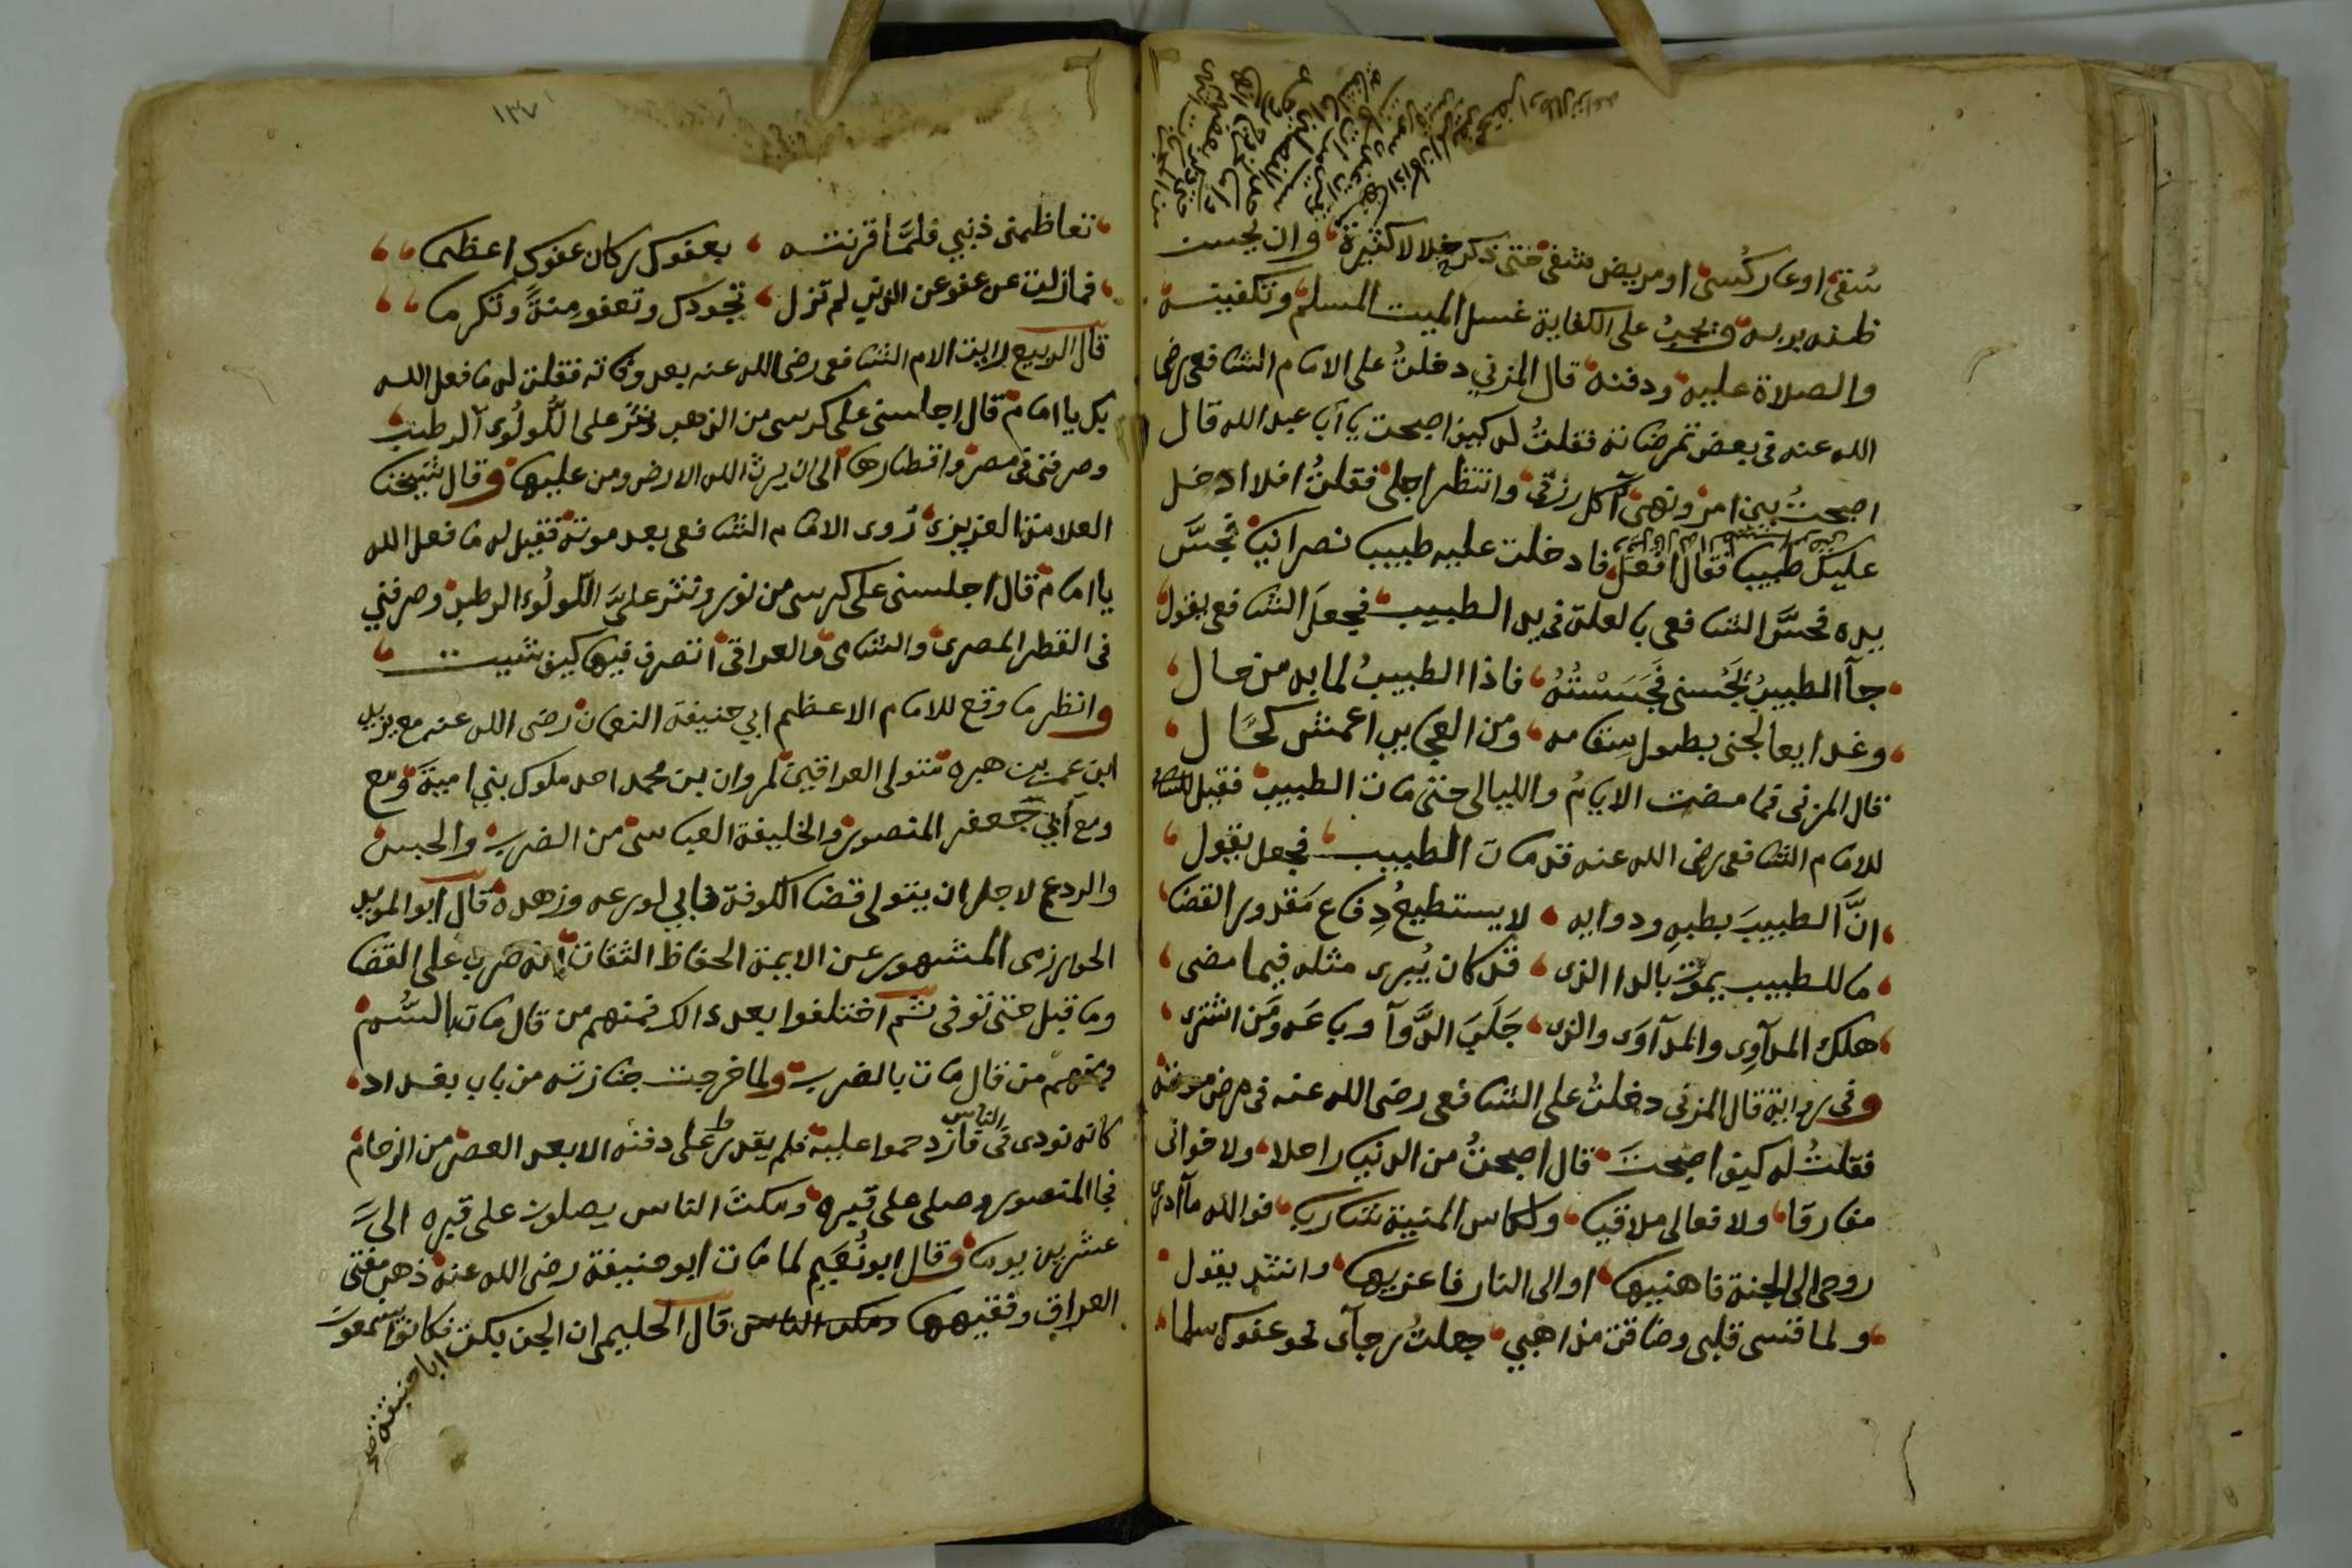 سُقى او عار كُسى او مريض شفى حتى ذكر خلالا كثيرة وان يحسن
ظنه بربه ويجبُ على الكفاية غسل الميت المسلم وتكفينه
والصلاة عليه ودفنه قال المزني دخلتُ على الامام الشافعى رضى
الله عنه فى بعض تمرضاته فقلتُ له كيف اصبحت يا أبا عبد الله قال
اصبحتُ بين امر ونهى آكل رزقى وانتظر اجلى فقلتُ افلا ادخل
عليك طبيبا فقال افعل فادخلت عليه طبيبا نصرانيا فجسَّ
يده فحسَّ الشافعى بالعلة فى يد الطبيب فجعل الشافعى يقول
جآ الطبيبُ يَجُسنى فَجَسَسْتُهُ فاذا الطبيبُ لما به من حال
وغدا يعالجنى بطول سقامه ومن العجايب اعمش كحَّال
قال المزنى فما مضت الايامُ والليالى حتى مات الطبيب فقيل
للامام الشافعى رضى الله عنه قد مات الطبيب فجعل يقول
انَّ الطبيبَ بطبهِ ودوايه لا يستطيعُ دِفاع مَقدور القضا
ما للطبيب يموت بالدا الذى قد كان يُبرى مثله فيما مضى
هلك المدآوِى والمدآوَى والذى جَلَبَ الدَّوآ وباعه ومَن اشترى
وفى رواية قال المزنى دخلتُ على الشافعى رضى الله عنه فى مرض موته
فقلتُ له كيف اصبحتَ قال اصبحتُ من الدنيا راحلا ولاخوانى
مفارقا ولافعالى ملاقيا ولكاس المنية شاربا فوالله مآ ادرى
روحى الى الجنة فاهنيها او الى النار فاعزيها وانشد يقول
ولما قسى قلبى وضاقت مذاهبي جعلتُ رجآى نحو عفوك سلما
١٣٧
تعاظمنى ذنبي فلمَّا قرنته بعفوك ربى كان عفوك اعظما
فما زلت عن عفو عن الذنب لم تزل تجود وتعفو مِنةً وتكرما
قال الربيع رايت الامام الشافعى رضى الله عنه بعد وفاته فقلت له ما فعل الله
بك يا امام قال اجلسنى على كرسى من الذهب ونثر على اللُّولُو الرطب
وصرفنى فى مصر واقطارها الى ان يرث الله الارض ومن عليها وقال شيخنا
العلامة العزيزى رُوى الامام الشافعى بعد موته فقيل له ما فعل الله
يا امام قال اجلسنى على كرسى من نور ونثر علىَّ اللولُو الرطب وصرفني
فى القطر المصرى والشامى والعراقى اتصرف فيها كيف شيت
وانظر ما وقع للامام الاعظم ابي حنيفة النعمان رضى الله عنه مع يزيد
ابن عمر بن هبره متولى العراقين لمروان بن محمد احد ملوك بني امية ومع
ومع أبي جعفر المنصور والخليفة العباسى من الضرب والحبس
والردع لاجل ان يتولى قضا الكوفة فابي لورعه وزهده قال ابو المويد
الخوارزمى المشهور عن الايمة الحفاظ الثقات انه ضرب على القضا
وما قبل حتى توفى ثم اختلفوا بعد ذالك فمنهم من قال مات بالسُّم
ومنهم من قال مات بالضرب ولما خرجت جنازته من باب بغداد
كانه نودى فى الناس فازدحموا عليه فلم يقدر على دفنه الا بعد العصر من الزحام
فجا المنصور وصلى على قبره ومكث الناس يصلون على قبره الى
عشرين يوما وقال ابو نُعَيم لما مات ابو حنيفة رضى الله عنه ذهب مفتى
العراق وفقيهها قال الحليمى ان الجن بكت فكانوا يسمعون
ابا حنيفة